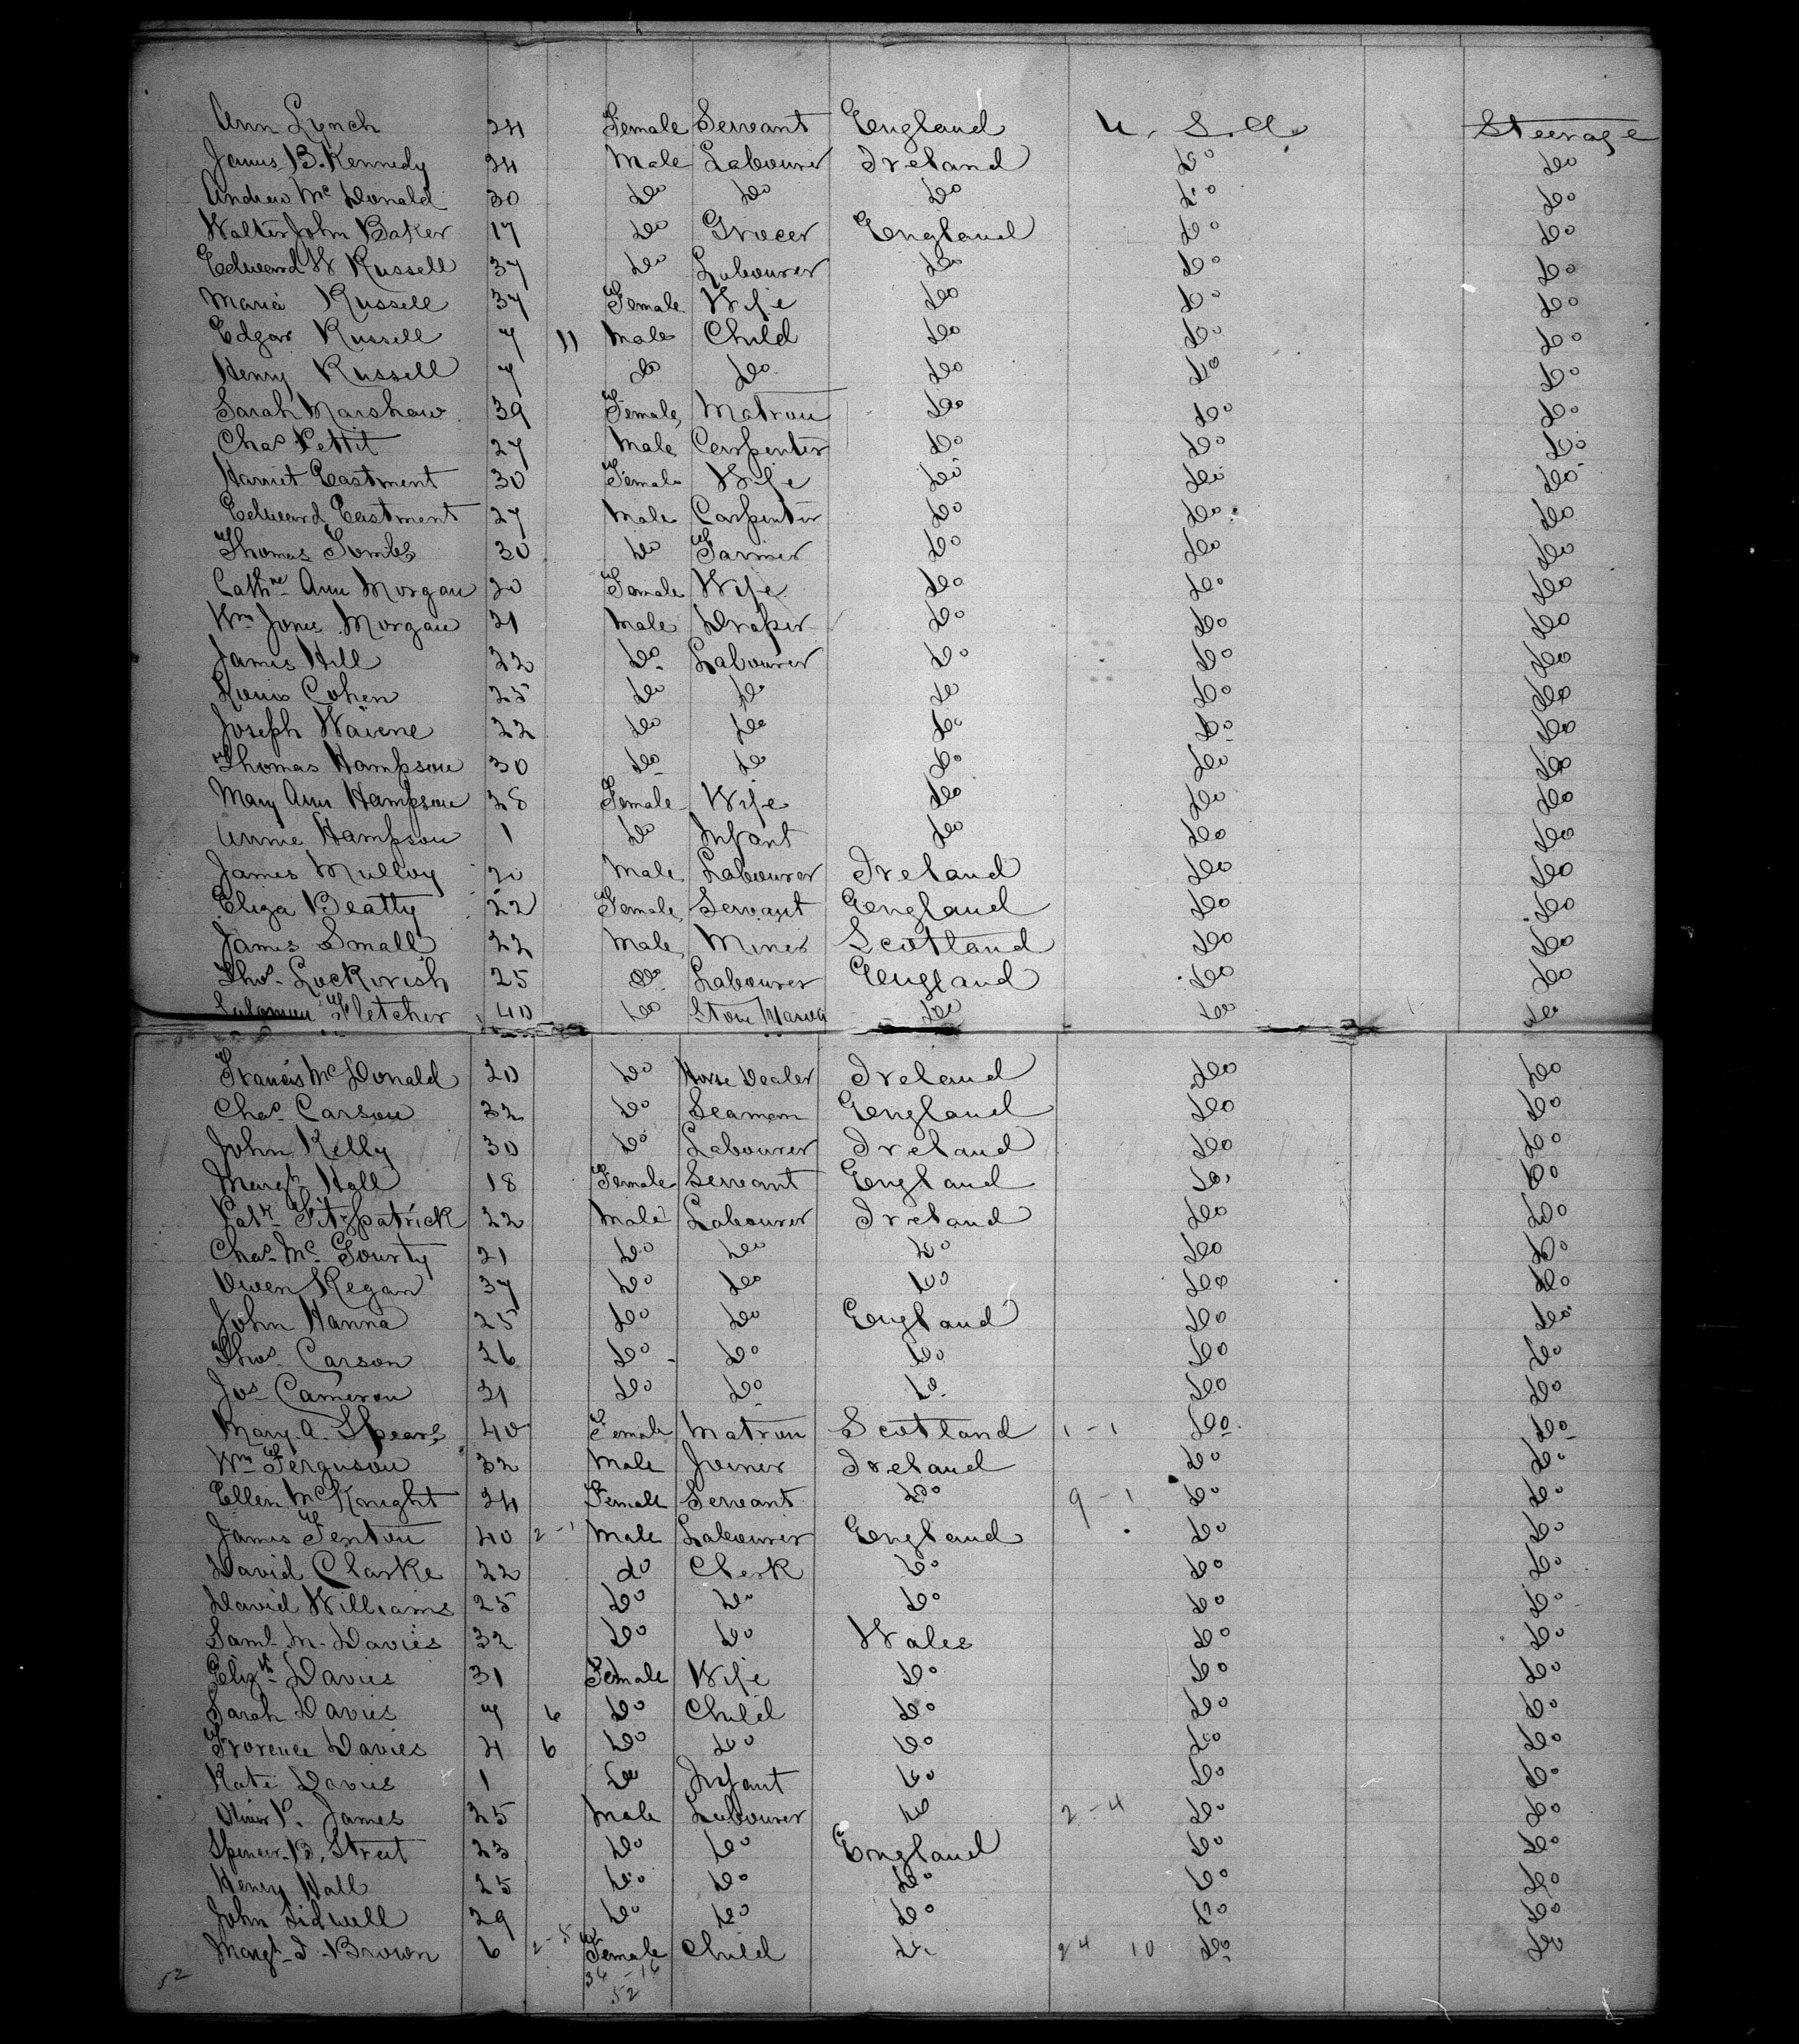 Ann Lynch 24 Female Servant England U. S. A. Steerage
James B. Kennedy 24 Male Labourer Ireland Do Do
Andrew Mc Donald 30 Do Do Do Do Do
Walter John Baker 17 Do Grocer England Do Do
Edward W Russell 37 Do Labourer Do Do Do
Maria Russell 37 Female Wife Do Do Do
Edgar Russell 7 11 Male Child Do Do Do
Henry Russell 7 do Do Do Do Do
Sarah Marshaw 39 Female Matron Do Do Do
Chas Pettit 27 Male Carpenter Do Do Do
Harriet Eastment 30 Female Wife Do Do Do
Edward Eastment 27 Male Carpenter Do Do Do
Thomas Tombs 30 Do Farmer Do Do Do
Cathne Ann Morgan 20 Female Wife Do Do Do
Wm Jones Morgan 21 Male Draper Do Do Do
James Hill 22 Do Labourer Do Do Do
Louis Cohen 25 Do Do Do Do Do
Joseph Wavene 22 Do Do Do Do Do
Thomas Hampson 30 Do Do Do Do Do
Mary Ann Hampson 28 Female Wife Do Do Do
Annie Hampson 1 Do Infant Do Do Do
James Mulloy 20 Male Labourer Ireland Do Do
Eliza Beatty 22 Female Servant England Do Do
James Small 22 Male Miner Scotland Do Do
Thos Lockwish 25 Do Labourer England Do Do
Solomon Fletcher 40 Do Stone Mason Do Do Do
Francis Mc Donald 20 Do Horse Dealer Ireland Do Do
Chas Carson 32 Do Seaman England Do Do
John Kelly 30 Do Labourer Ireland Do Do
Margt Hall 18 Female Servant England Do Do
Patk Fitzpatrick 22 Male Labourer Ireland Do Do
Chas Mc Gourty 21 Do Do Do Do Do
Owen Regan 37 Do Do Do Do Do
John Hanna 25 Do Do England Do Do
Thos Carson 26 Do Do Do Do Do
Jos Cameron 31 Do Do Do Do Do
Mary A. Spears 40 Female Matron Scotland 1-1 Do Do
Wm Ferguson 32 Male Joiner Ireland Do Do
Ellen McKnight 24 Female Servant Do 9-1 Do Do
James Fenton 40 2-1 Male Labourer England Do Do
David Clarke 22 do Clerk Do Do Do
David Williams 25 Do Do Do Do Do
Saml M. Davies 32 Do Do Wales Do Do
Elizth Davies 31 Female Wife Do Do Do
Sarah Davies 7 6 Do Child Do Do Do
Frorence Davies 4 6 Do Do Do Do Do
Kate Davies 1 Do Infant Do Do Do
Oliver P. James 25 Male Labourer Do 2-4 Do Do
Spencer B. Street 23 Do Do England Do Do
Henry Hall 25 Do Do Do Do Do
John Sidwell 29 Do Do Do Do Do
Margt J. Brown 6 2-5 Female Child Do 24 10 Do Do
52 36-16
52